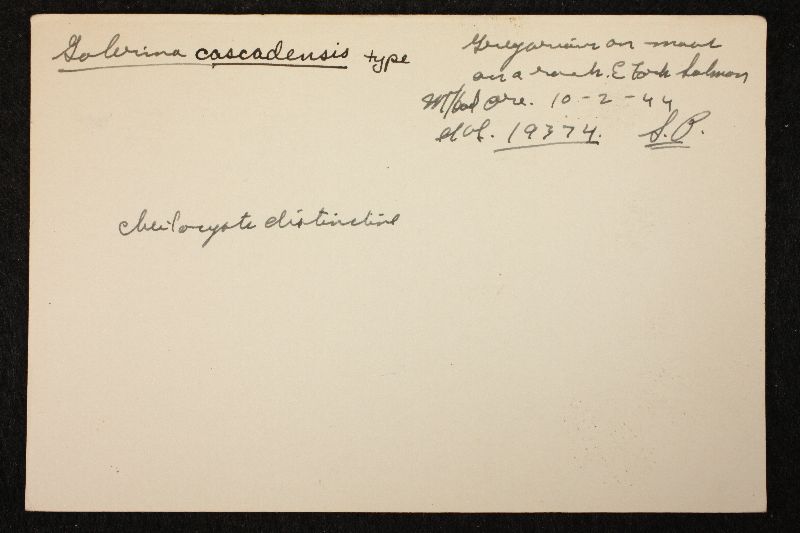 Galerina cascadensis type
Gregarious on moss
on a rock. E Fork Salmon
Mt Hood Ore. 10-2-44
19374. S.P.
cheilocysts distinctive